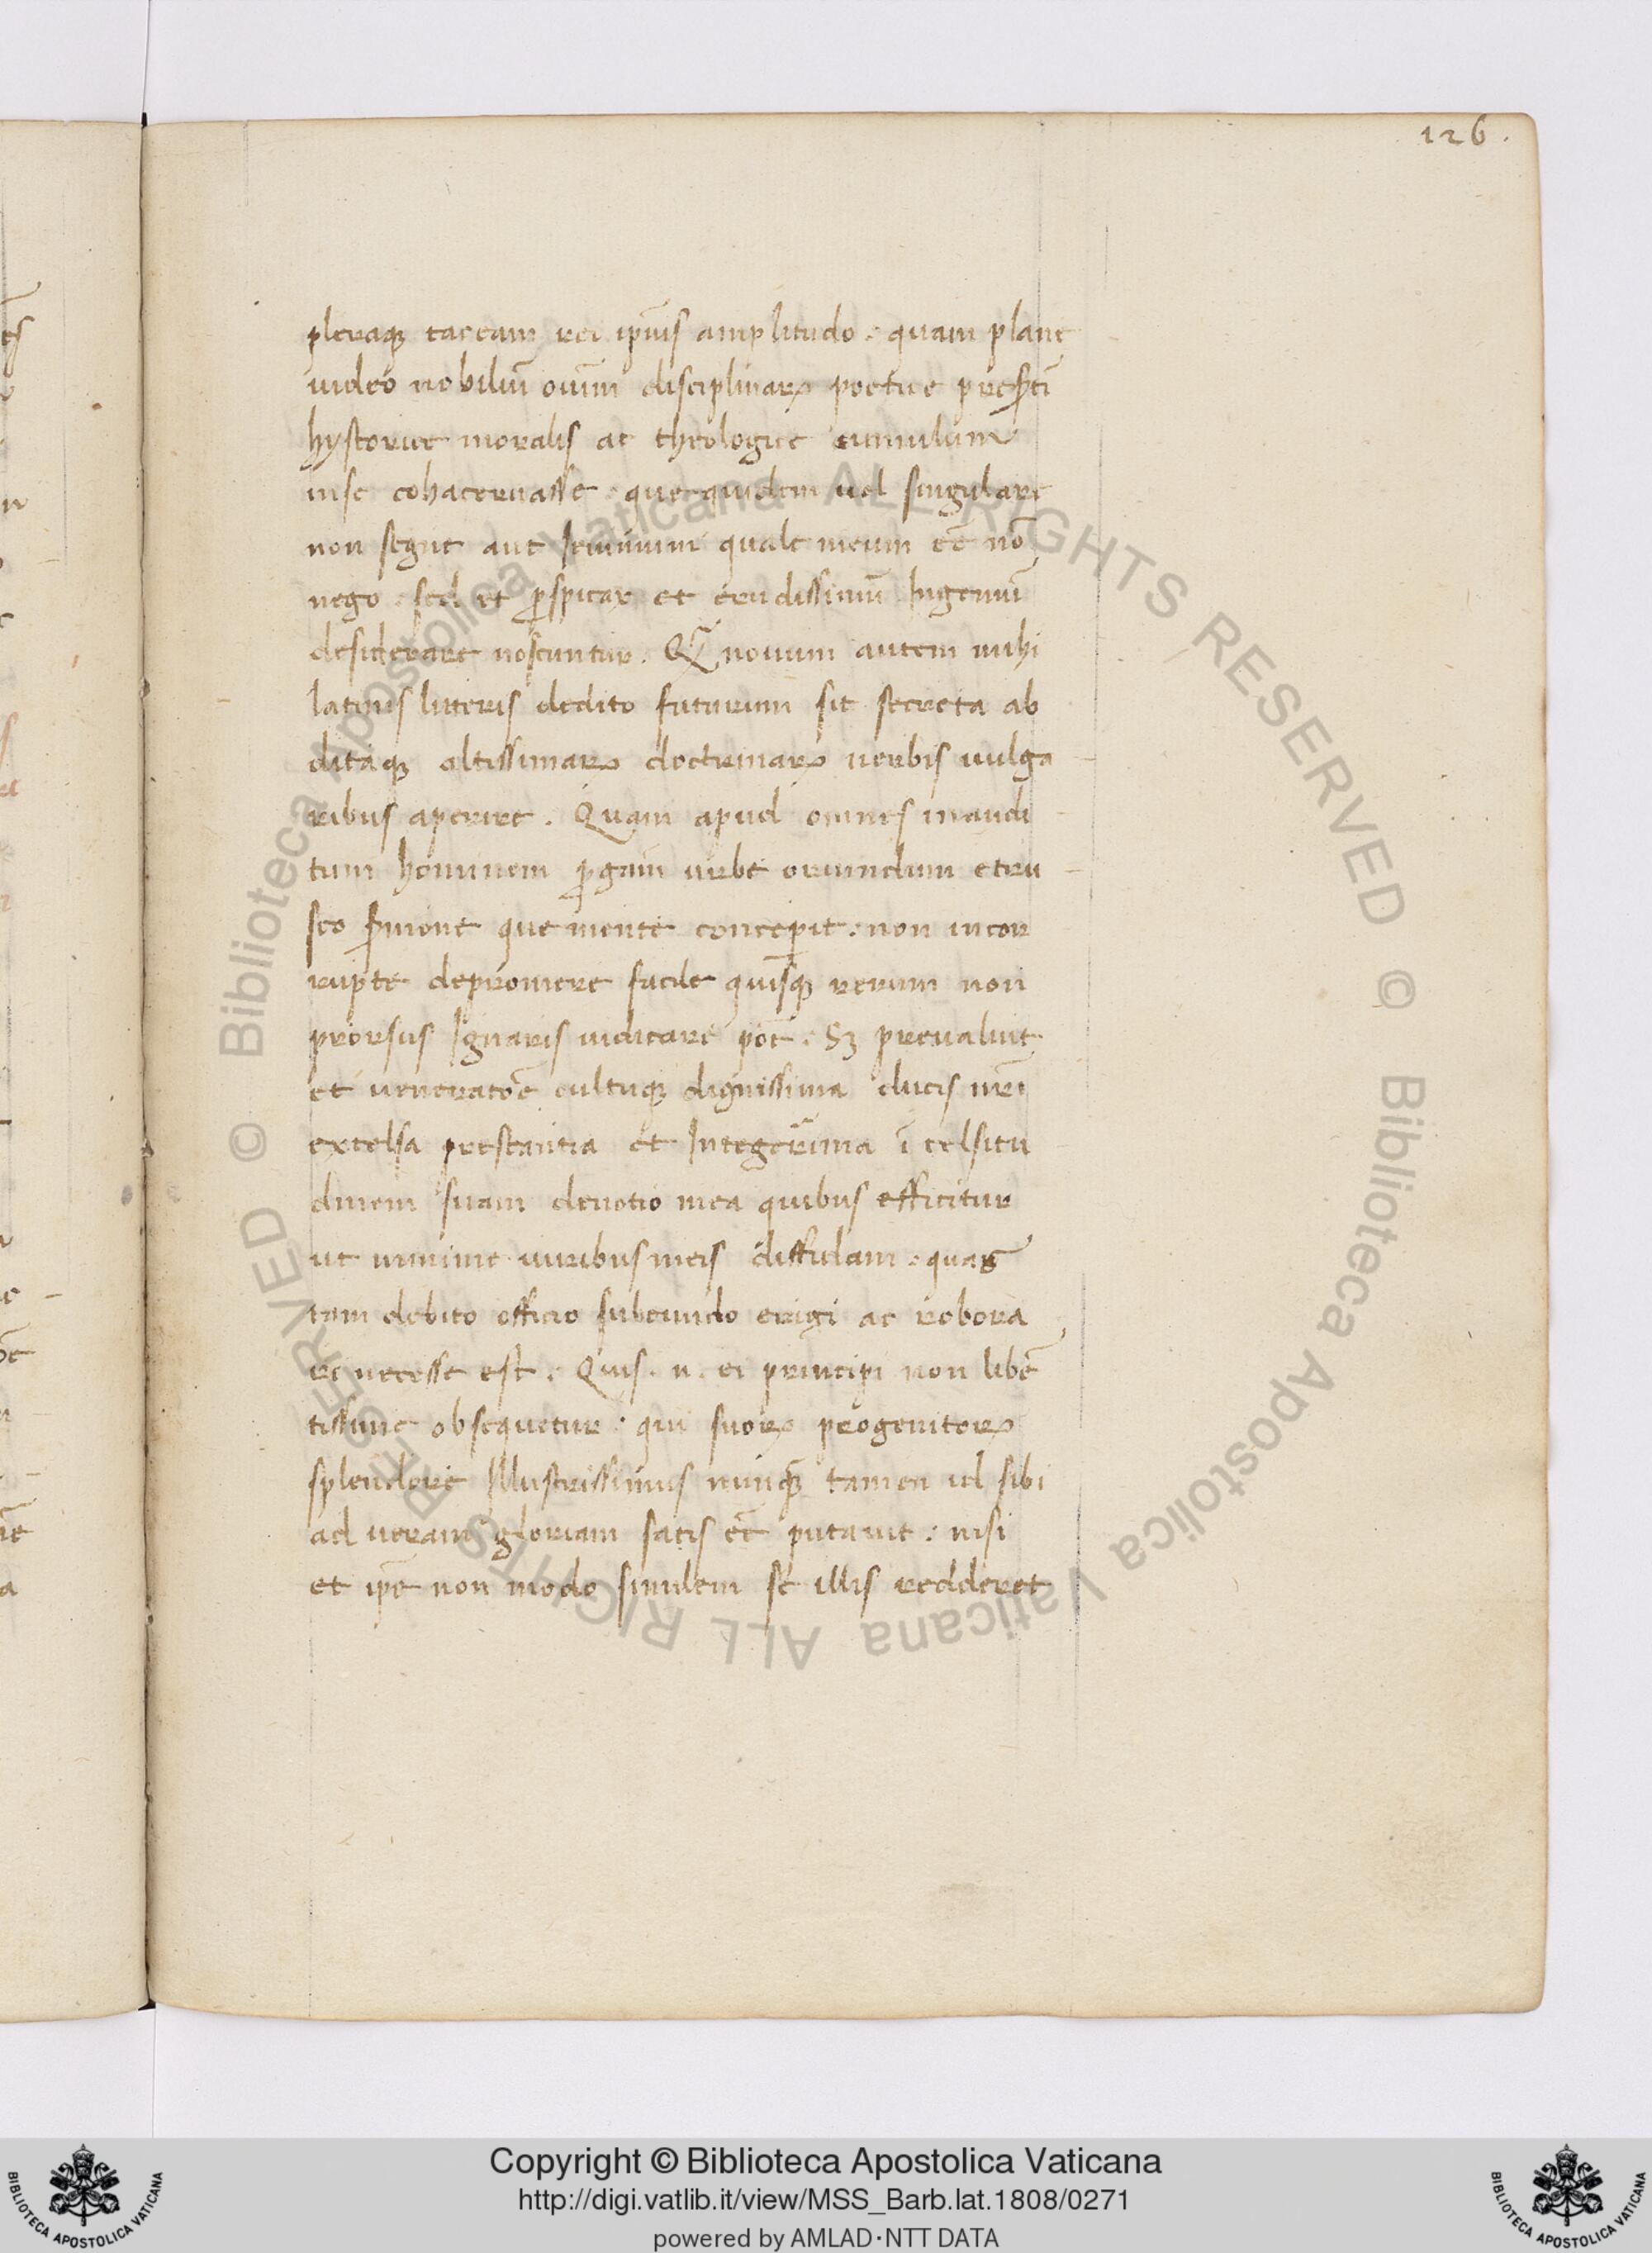 126.
pleraqꝫ taceam rei ip̄ius amplitudo. quam plane
uideo nobiliū oīum disciplinaꝝ poetice presꝑtī
hystorice moralis ac theologice cumulum
inse cohaceruasse. que quidem uel singulare
non segne aut Ieiunium quale meum eē nō
nego. sed et ꝑspicax et erudissimū Ingeniū
desiderare noscuntur. Q̄ nouum autem mihi
latinis litteris dedito futurum sit secreta ab
ditaqꝫ altissimaꝝ doctrinaꝝ uerbis uulga
ribus aperire. Quam apud omnes inaudi
tum hominem ꝑgam urbe oriundum etru
sco s̄mone que mente conceperit. non incor
rupte depromere facile quisqꝫ rerum non
prorsus Ignaris iudicare pot̄. Sꝫ preualuit
et ueneratōe cultuqꝫ dignissima ducis nr̄i
excelsa prestantia et Integerrima ī celsitu
dinem suam deuotio mea quibus efficitur
ut minime uiribus meis diffidam. quas
tam debito officio subeundo erigi ac robora
ri necesse est. Quis. n. ei principi non libē
tissime obsequetur. qui suoꝝ progenitoꝝ
splendore Illustrissimus nunqꝫ tamen id sibi
ad ueram gloriam satis eē putauit: nisi
et ip̄e non modo similem se illis redderet
© Biblioteca Apostolica Vaticana ALL RIGHTS RESERVED © Biblioteca Apostolica Vaticana ALL RIGHTS RESERVED
Copyright © Biblioteca Apostolica Vaticana
http://digi.vatlib.it/view/MSS_Barb.lat.1808/0271
powered by AMLAD·NTT DATA
BIBLIOTECA APOSTOLICA VATICANA
BIBLIOTECA APOSTOLICA VATICANA